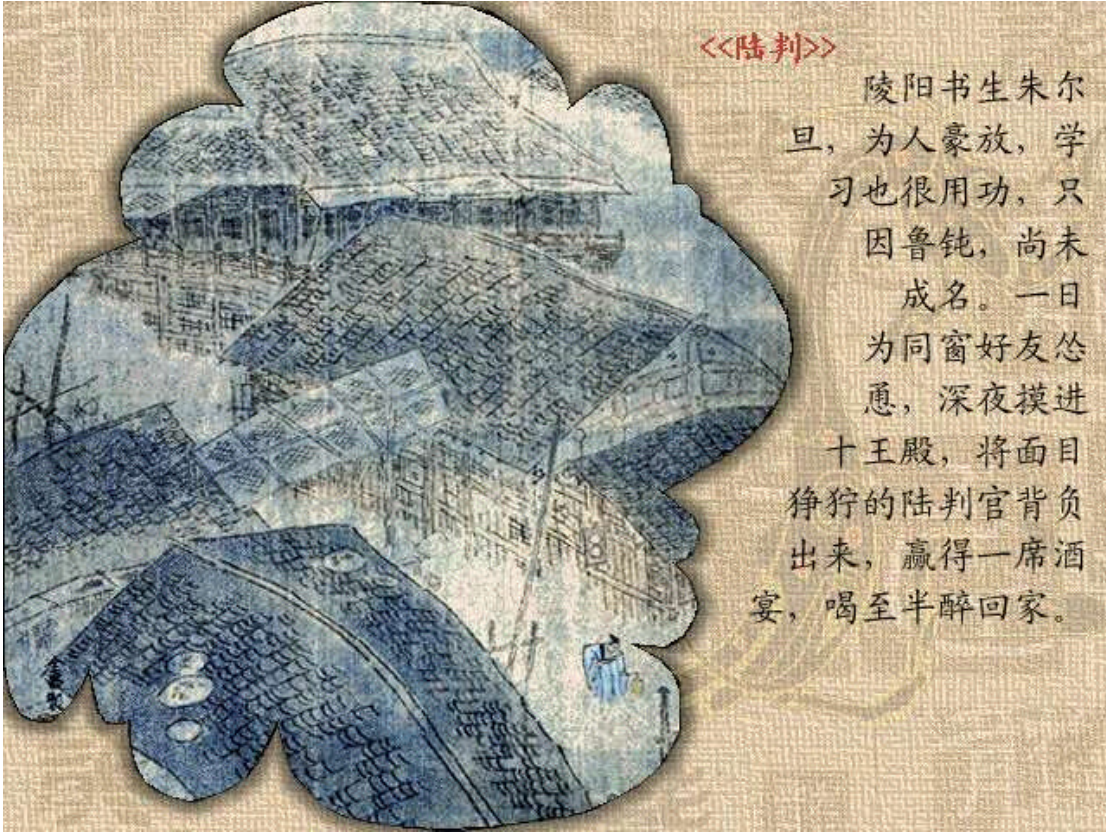 <<陆判>>
陵阳书生朱尔
旦，为人豪放，学
习也很用功，只
因鲁钝，尚未
成名。一日
为同窗好友怂
恿，深夜摸进
十王殿，将面目
狰狞的陆判官背负
出来，赢得一席酒
宴，喝至半醉回家。